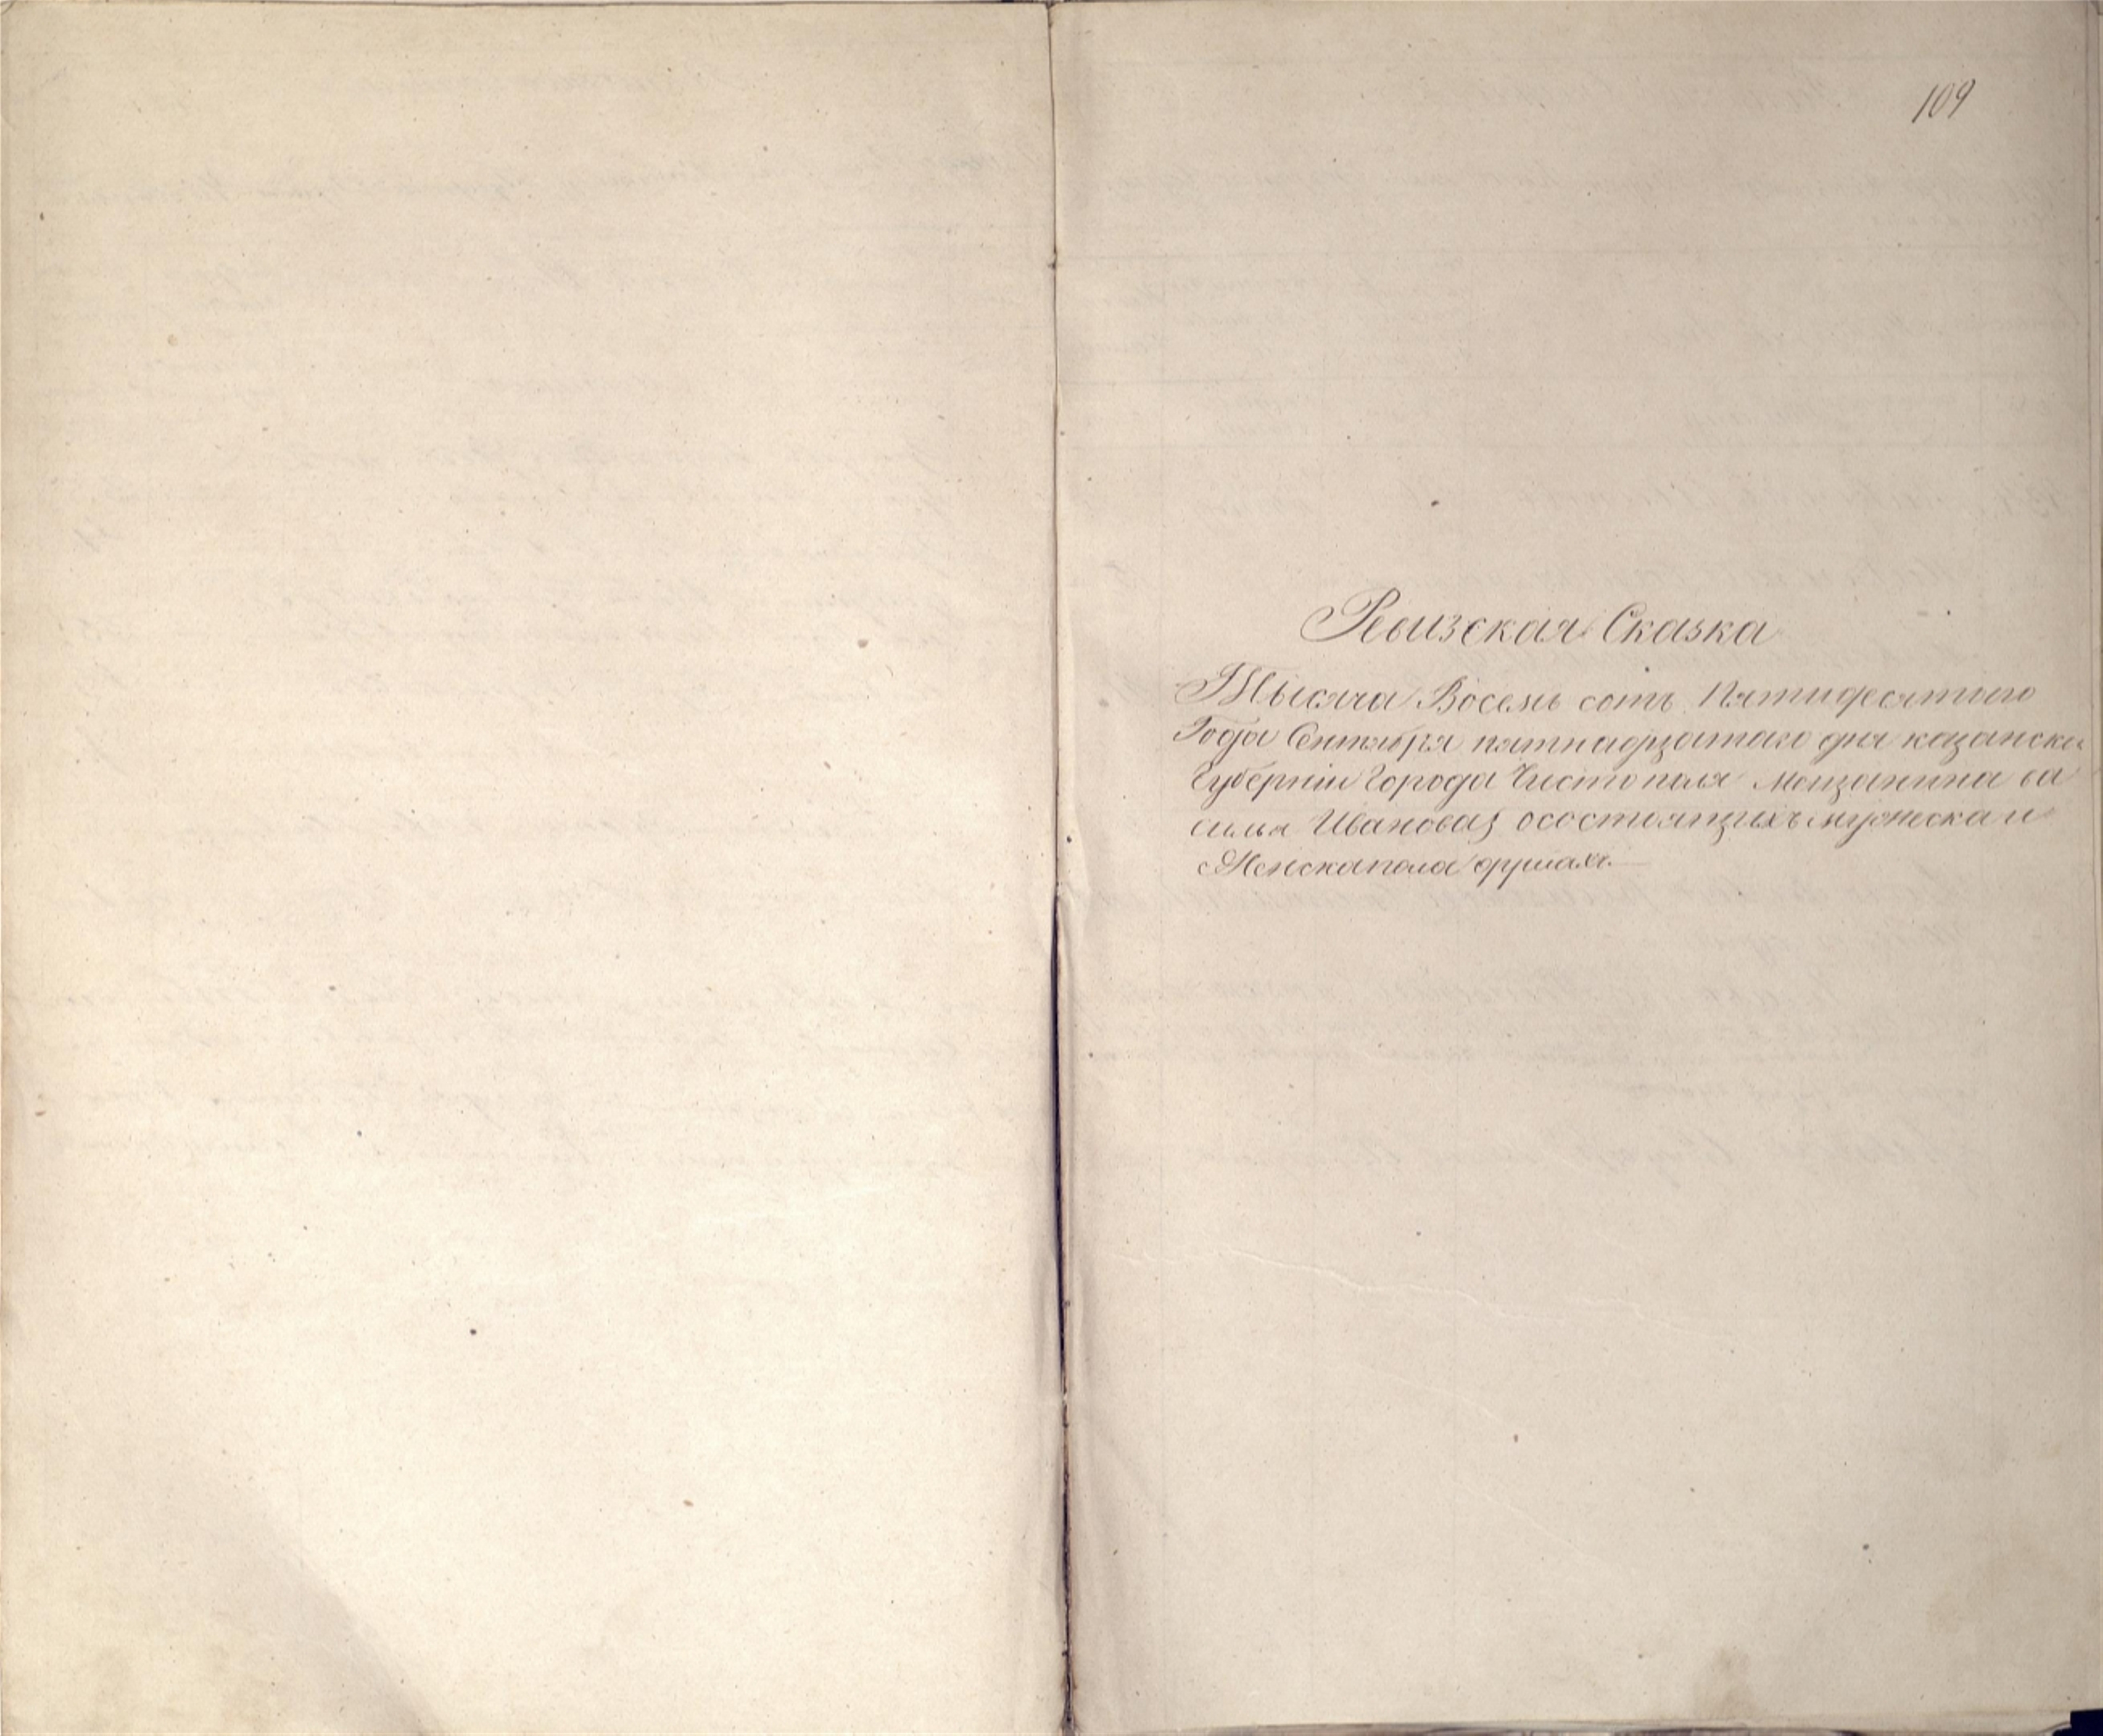 109
Ревизская Сказка
Тысяча Восемь сотъ Пятидесятого
Года Сентября пятнадцатого дня казанска
Губерніи Города Чистополя Мещанина ва
силья Иванова осостоящихъ мужеска и
Женска пола душахъ.